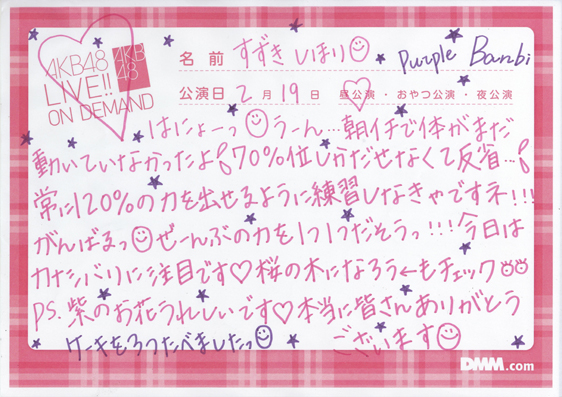 AKB48
LIVE!!
ON DEMAND
AKB
48
名前 すずき しほり Purple Banbi
公演日 2月19日 昼公演・おやつ公演・夜公演
はにょーっ うーん…朝イチで体がまだ
動いていなかったよ 70%位しかだせなくて反省…
常に120%の力を出せるように練習しなきゃですネ!!!
がんばるっ ぜーんぶの力を1つ1つだそうっ!!!今日は
カナシバリに注目です♡桜の木になろう←もチェック
PS. 紫のお花うれしいです♡本当に皆さんありがとう
ケーキを3つたべましたっ ございます
DMM.com